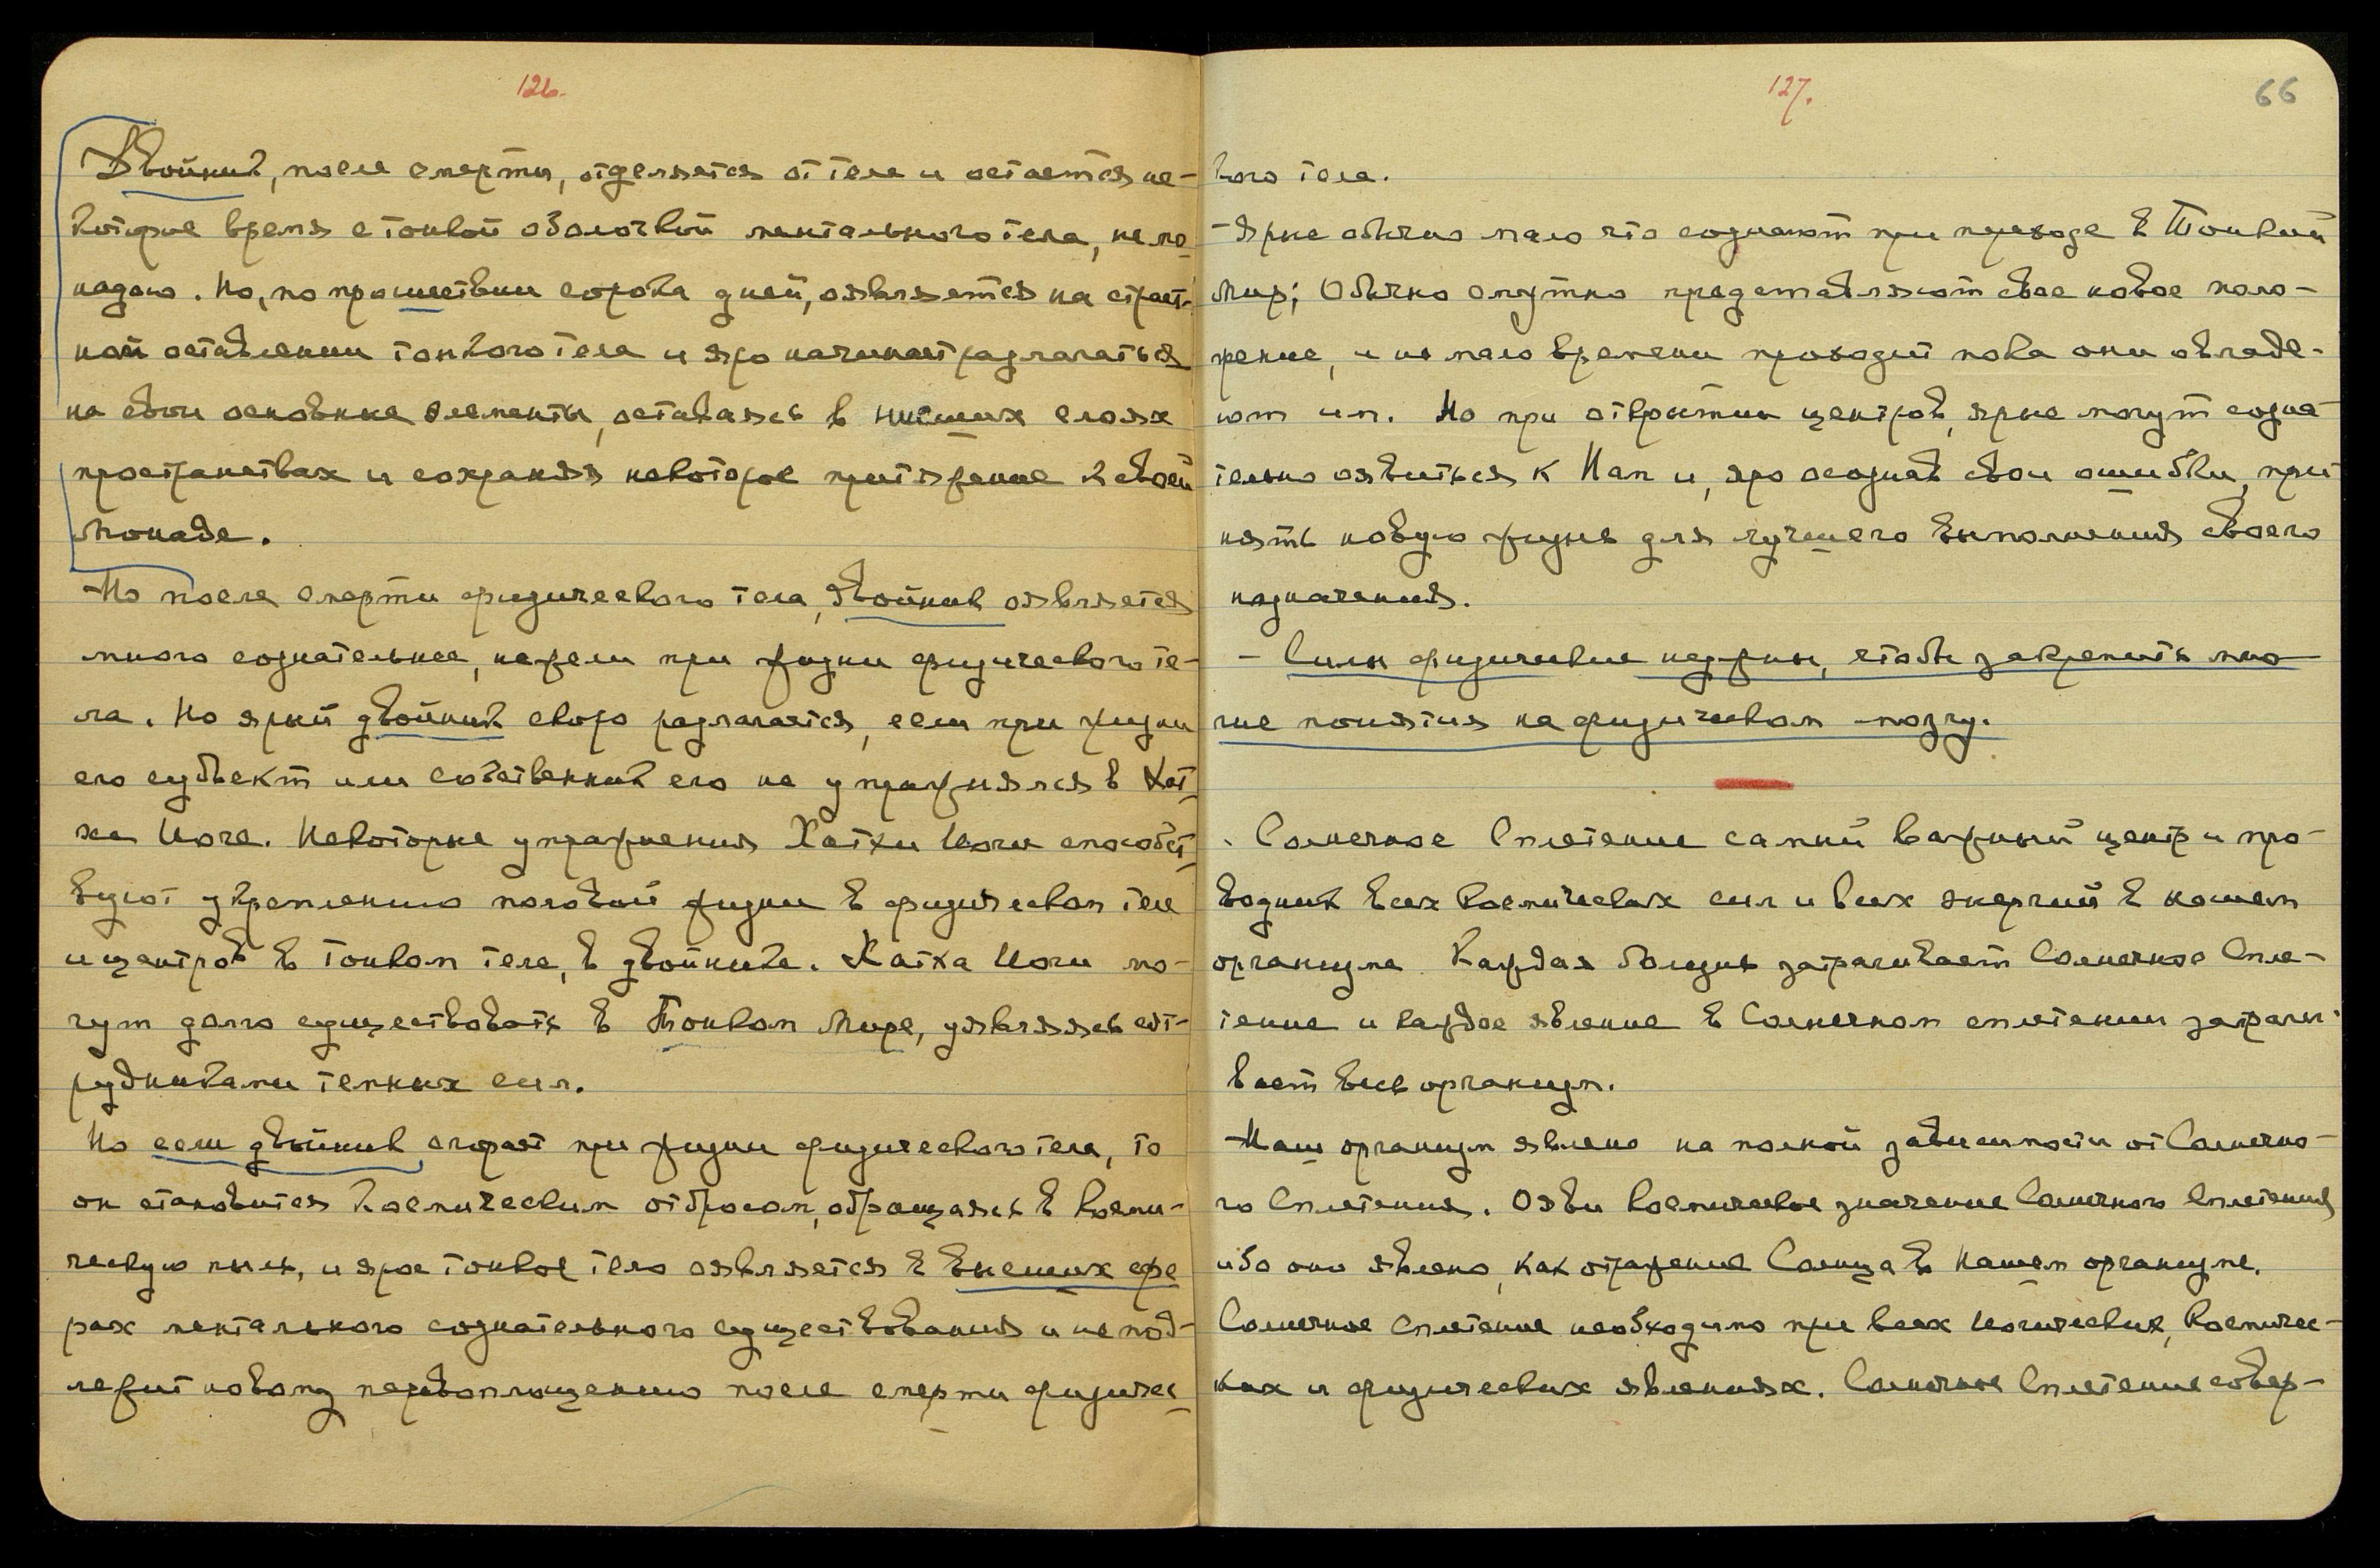 126.
Двойник, после смерти, отделяется от тела и остается не-
которое время с тонкой оболочкой ментального тела, не по
надолго. Но, по прошествии сорока дней, оявляется на страст-
ном оставлении тонкого тела и яро начинает разлагаться
на свои основные элементы, оставаясь в низших слоях
пространствах и сохраняя некоторое притяжение к своей
Монаде.
Но после смерти физического тела, двойник оявляется
много сознательнее, нежели при жизни физического те-
ла. Но ярый двойник скоро разлагается, если при жизни
его субъект или собственник его не упражнялся в Хат-
ха Йоге. Некоторые упражнения Хатхи Йоги способст-
вуют укреплению половой жизни в физическом теле
и центров в тонком теле, в двойнике. Хатха Йоги мо-
гут долго существовать в Тонком Мире, уявляясь сот-
рудниками темных сил.
Но если двойник сгорает при жизни физического тела, то
он становится космическим отбросом, обращаясь в косми-
ческую пыль, и ярое тонкое тело оявляется в внешних сфе
рах ментального сознательного существования и не под-
лежит новому перевоплощению после смерти физичес
127.
66
кого тела.
- Ярые обычно мало что сознают при переходе в Тонкий
Мир; Обычно смутно представляют свое новое поло-
жение, и не мало времени проходит пока они овладе-
ют им. Но при открытии центров, ярые могут созна-
тельно оявиться к Нам и, яро осознав свои ошибки, при
нять новую жизнь для лучшего выполнения своего
назначения.
- Силы физические нужны, чтобы закрепить мно
гие понятия на физическом мозгу.
. Солнечное Сплетение самый важный центр и про-
водник всех космических сил и всех энергий в нашем
организме. Каждая болезнь затрагивает Солнечное Спле-
тение и каждое явление в Солнечном сплетении затраги-
вает весь организм.
- Наш организм явлено на полной зависимости от Солнечно-
го Сплетения. Ояви космическое значение Солнечного Сплетения
ибо оно явлено, как отражение Солнца в Нашем организме.
Солнечное Сплетение необходимо при всех йогических, космичес-
ких и физических явлениях. Солнечное Сплетение совер-